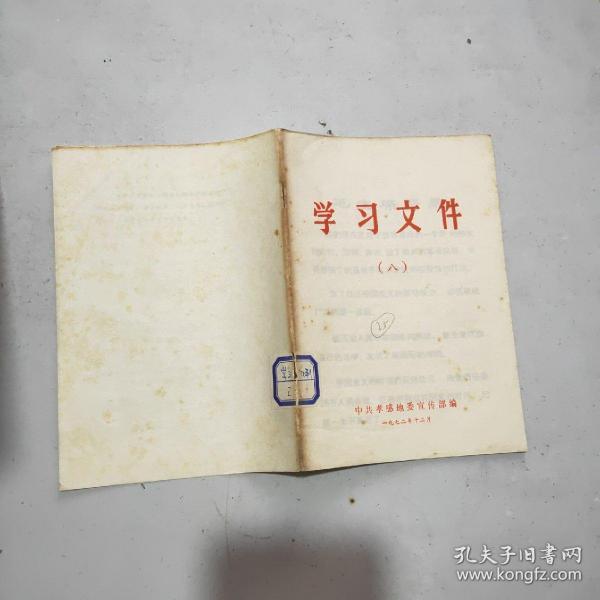 学习文件
（八）
25
中共孝感地委宣传部编
一九七二年十二月
孔夫子旧书网
www.kongfz.com